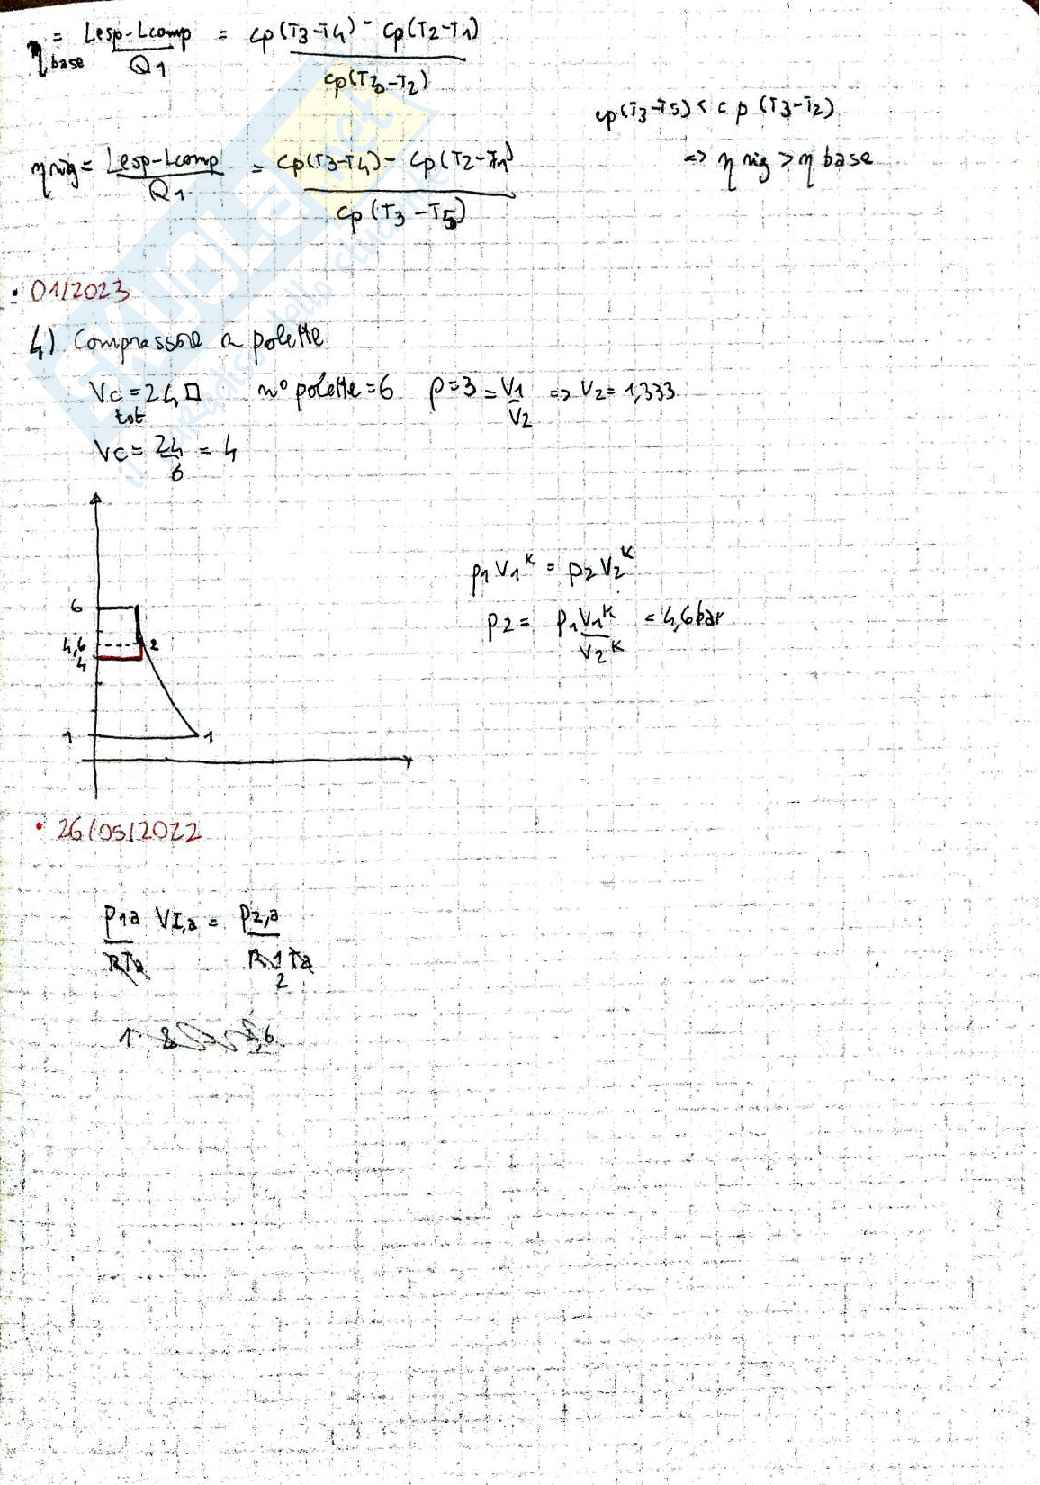 η base = Lesp-Lcomp / Q1 = cp(T3-T4) - cp(T2-T1) / cp(T3-T2)
cp(T3-T5) < cp (T3-T2)
η rig = Lesp-Lcomp / Q1 = cp(T3-T4) - cp(T2-T1) / cp(T3-T5)
=> η rig > η base
• 01/2023
4) Compressore a palette
Vc tot = 24 □ n° palette = 6 ρ=3 = V1/V2 => V2= 1,333
Vc = 24/6 = 4
p1 V1^K = p2 V2^K
p2 = p1 V1^K / V2^K = 4,6 bar
6
4,6 2
4
1 1
• 26/05/2022
p1a / RTa VI,a = p2,a / R Ta
2
1